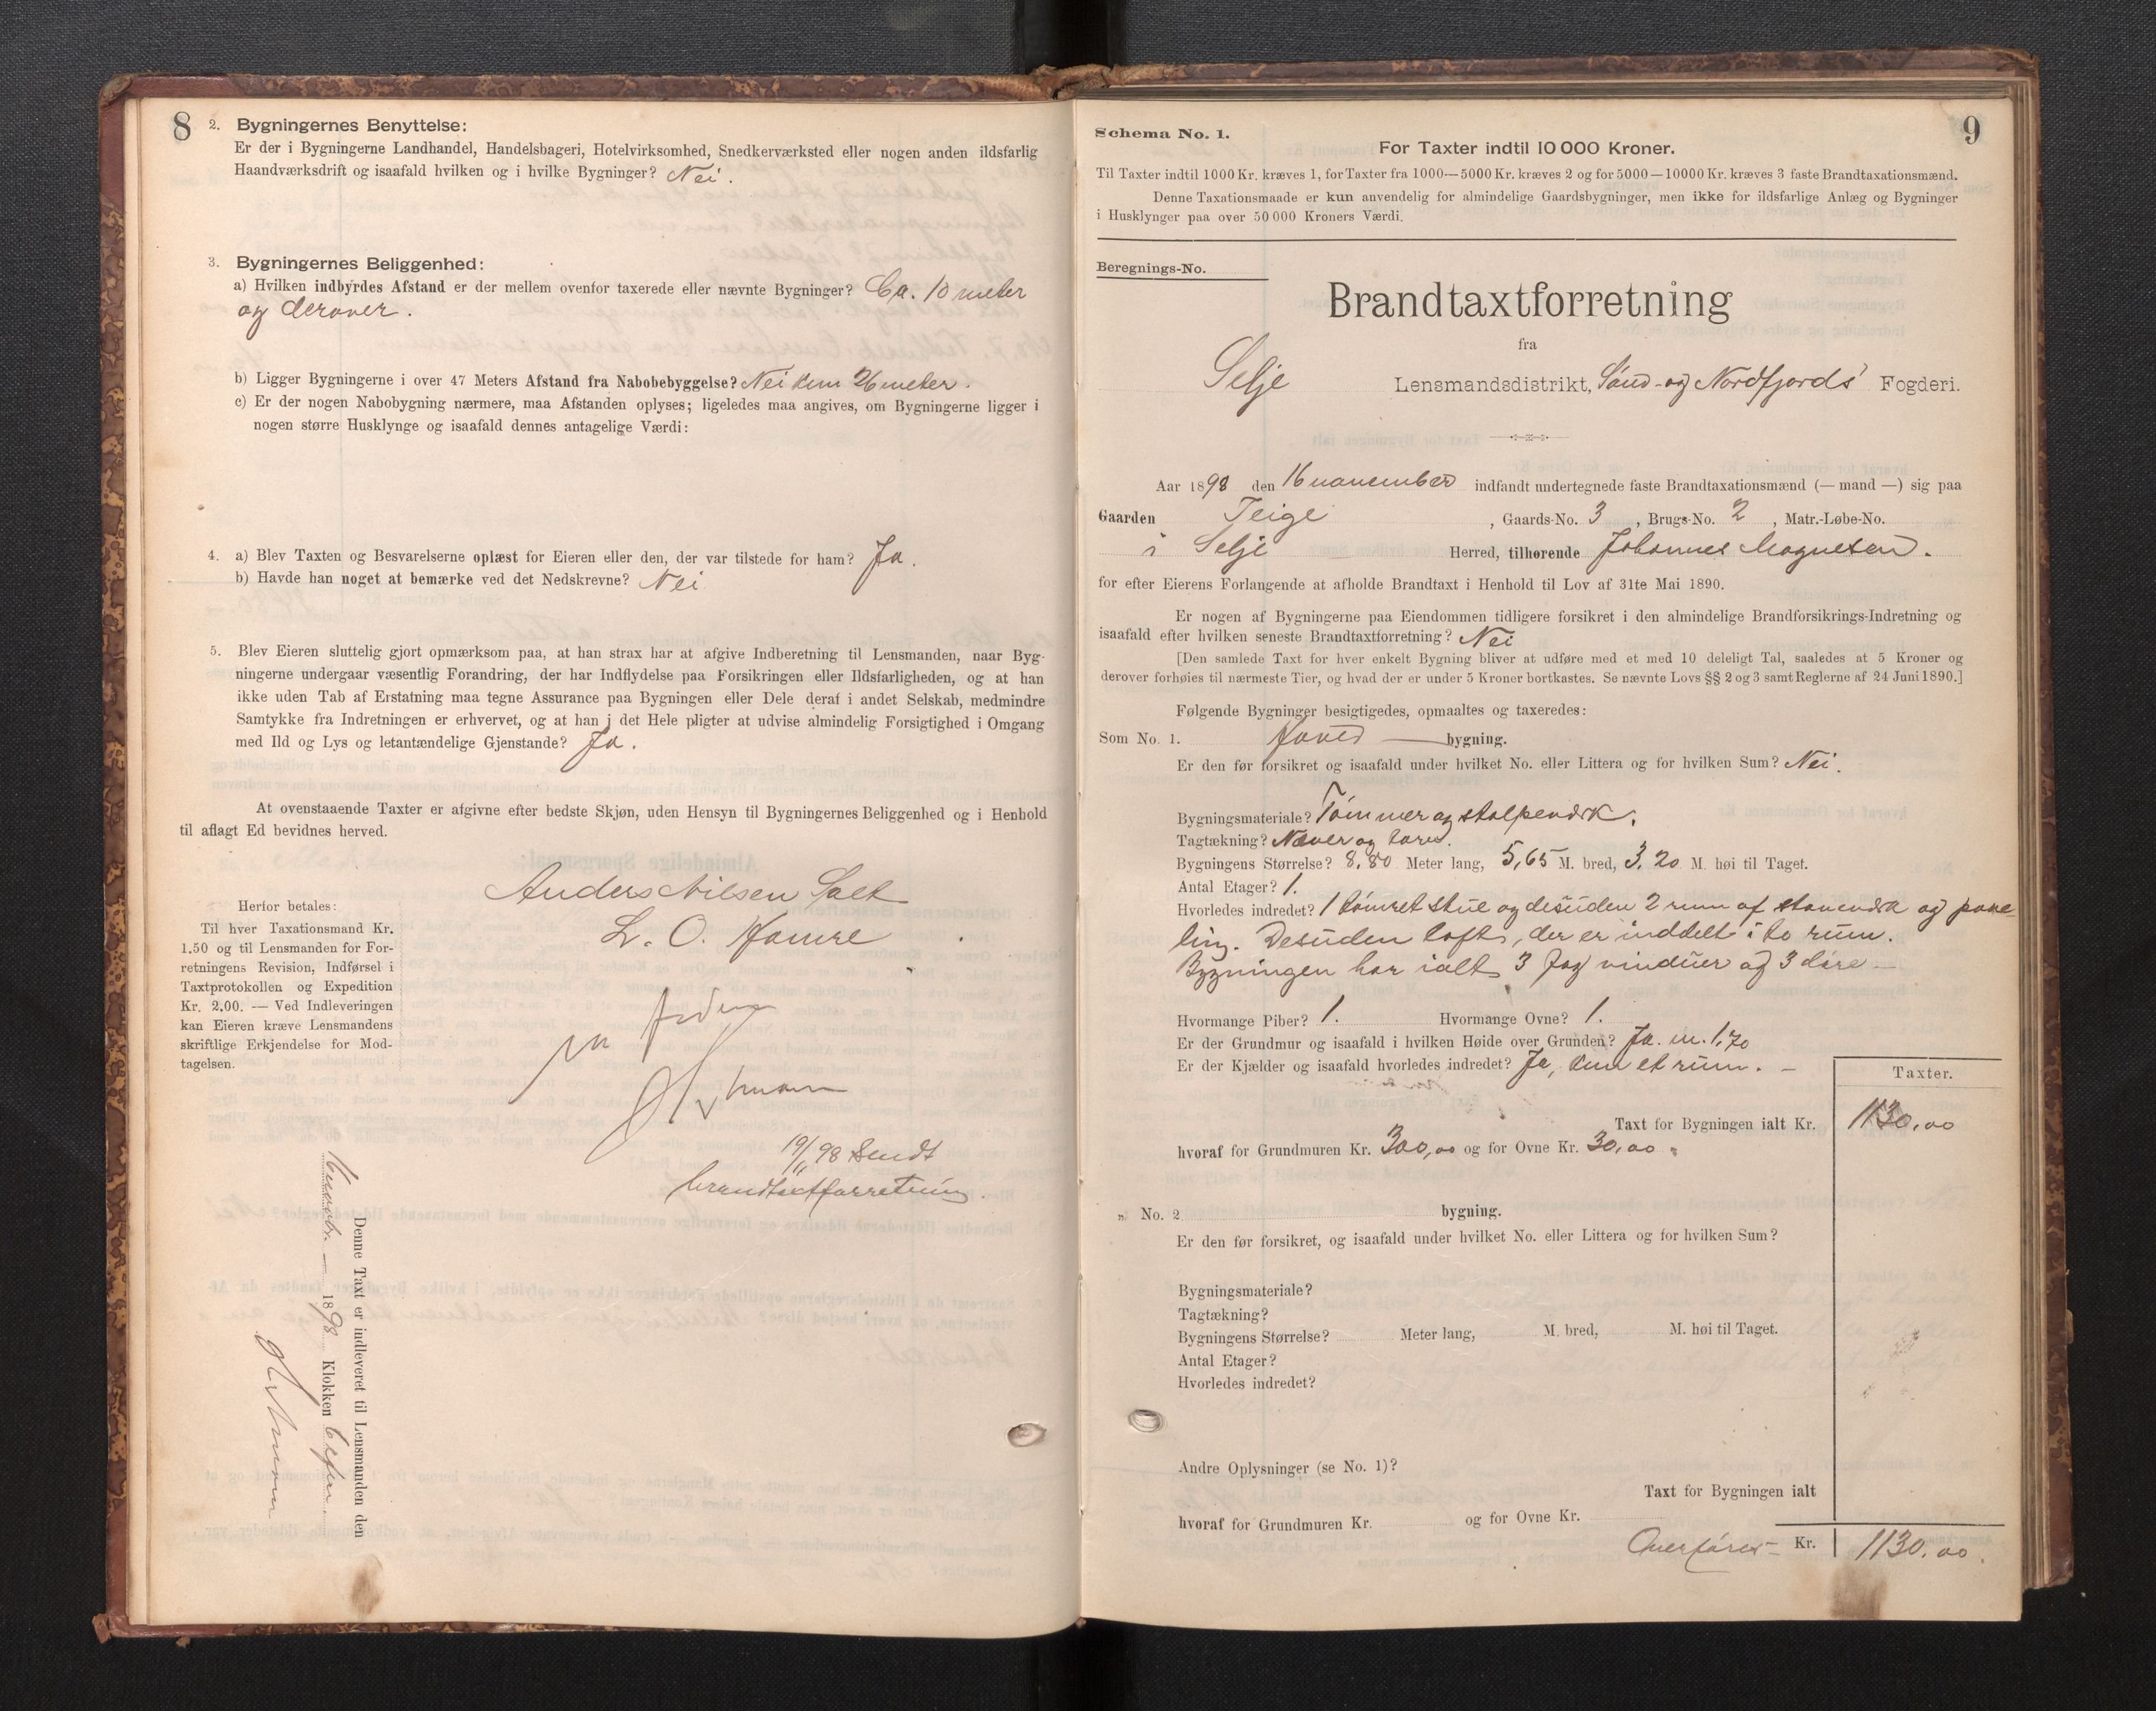 8
2. Bygningernes Benyttelse:
Er der i Bygningerne Landhandel, Handelsbageri, Hotelvirksomhed, Snedkerværksted eller nogen anden ildsfarlig
Haandværksdrift og isaafald hvilken og i hvilke Bygninger? Nei.
3. Bygningernes Beliggenhed:
a) Hvilken indbyrdes Afstand er der mellem ovenfor taxerede eller nævnte Bygninger? Ca. 10 meter
og derover.
b) Ligger Bygningerne i over 47 Meters Afstand fra Nabobebyggelse? Nei kun 26 meter.
c) Er der nogen Nabobygning nærmere, maa Afstanden oplyses; ligeledes maa angives, om Bygningerne ligger i
nogen større Husklynge og isaafald dennes antagelige Værdi:
4. a) Blev Taxten og Besvarelserne oplæst for Eieren eller den, der var tilstede for ham? Ja.
b) Havde han noget at bemærke ved det Nedskrevne? Nei
5. Blev Eieren sluttelig gjort opmærksom paa, at han strax har at afgive Indberetning til Lensmanden, naar Byg-
ningerne undergaar væsentlig Forandring, der har Indflydelse paa Forsikringen eller Ildsfarligheden, og at han
ikke uden Tab af Erstatning maa tegne Assurance paa Bygningen eller Dele deraf i andet Selskab, medmindre
Samtykke fra Indretningen er erhvervet, og at han i det Hele pligter at udvise almindelig Forsigtighed i Omgang
med Ild og Lys og letantændelige Gjenstande? Ja.
At ovenstaaende Taxter er afgivne efter bedste Skjøn, uden Hensyn til Bygningernes Beliggenhed og i Henhold
til aflagt Ed bevidnes herved.
Anders Nilsen Salt
L. O. Hamre
Herfor betales:
Til hver Taxationsmand Kr.
1.50 og til Lensmanden for For-
retningens Revision, Indførsel i
Taxtprotokollen og Expedition
Kr. 2,00. — Ved Indleveringen
kan Eieren kræve Lensmandens
skriftlige Erkjendelse for Mod-
tagelsen.
19/11 98 Sendt
brandtaxtforretning.
Denne Taxt er indleveret til Lensmanden den
16 novbr. — 1898 Klokken 6 efm.
9
Schema No. 1.
For Taxter indtil 10 000 Kroner.
Til Taxter indtil 1000 Kr. kræves 1, for Taxter fra 1000—5000 Kr. kræves 2 og for 5000—10000 Kr. kræves 3 faste Brandtaxationsmænd.
Denne Taxationsmaade er kun anvendelig for almindelige Gaardsbygninger, men ikke for ildsfarlige Anlæg og Bygninger
i Husklynger paa over 50 000 Kroners Værdi.
Beregnings-No.
Brandtaxtforretning
fra
Selje Lensmandsdistrikt, Sønd- og Nordfjords' Fogderi.
Aar 1898 den 16 november indfandt undertegnede faste Brandtaxationsmænd (— mand —) sig paa
Gaarden Teige, Gaards-No. 3, Brugs-No. 2, Matr.-Løbe-No.
i Selje Herred, tilhørende Johannes Magnesen.
for efter Eierens Forlangende at afholde Brandtaxt i Henhold til Lov af 31te Mai 1890.
Er nogen af Bygningerne paa Eiendommen tidligere forsikret i den almindelige Brandforsikrings-Indretning og
isaafald efter hvilken seneste Brandtaxtforretning? Nei
[Den samlede Taxt for hver enkelt Bygning bliver at udføre med et med 10 deleligt Tal, saaledes at 5 Kroner og
derover forhøies til nærmeste Tier, og hvad der er under 5 Kroner bortkastes. Se nævnte Lovs §§ 2 og 3 samt Reglerne af 24 Juni 1890.]
Følgende Bygninger besigtigedes, opmaaltes og taxeredes:
Som No. 1. Hoved — bygning.
Er den før forsikret og isaafald under hvilket No. eller Littera og for hvilken Sum? Nei.
Bygningsmateriale? Tømmer og stolpendrk.
Tagtækning? Næver og torv.
Bygningens Størrelse? 8,80 Meter lang, 5,65 M. bred, 3,20 M. høi til Taget.
Antal Etager? 1.
Hvorledes indredet? 1 tømret stue og desuden 2 rum af stavendrk og pane-
ling. Desuden loft, der er inddelt i to rum.
Bygningen har ialt 3 fag vinduer og 3 døre —
Hvormange Piber? 1. Hvormange Ovne? 1.
Er der Grundmur og isaafald i hvilken Høide over Grunden? Ja. m. 1,70
Er der Kjælder og isaafald hvorledes indredet? Ja, kun et rum. —
Taxter.
Taxt for Bygningen ialt Kr. 1130,00
hvoraf for Grundmuren Kr. 300,00 og for Ovne Kr. 30,00.
„ No. 2 bygning.
Er den før forsikret, og isaafald under hvilket No. eller Littera og for hvilken Sum?
Bygningsmateriale?
Tagtækning?
Bygningens Størrelse? Meter lang, M. bred, M. høi til Taget.
Antal Etager?
Hvorledes indredet?
Andre Oplysninger (se No. 1)?
Taxt for Bygningen ialt
hvoraf for Grundmuren Kr. og for Ovne Kr.
Overføres — Kr. 1130,00.